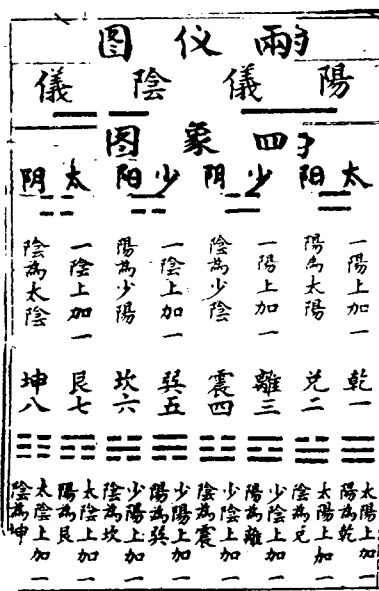 兩仪图
陽儀
陰儀
四象图
太阳
少阴
少阳
太阴
一陽上加一
陽為太陽
一陽上加一
陰為少陰
一陰上加一
陽為少陽
一陰上加一
陰為太陰
乾一
兌二
離三
震四
巽五
坎六
艮七
坤八
太陽上加一
陽為乾
太陽上加一
陰為兌
少陰上加一
陽為離
少陰上加一
陰為震
少陽上加一
陽為巽
少陽上加一
陰為坎
太陰上加一
陽為艮
太陰上加一
陰為坤